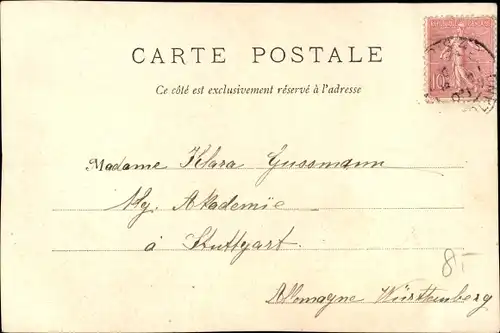 CARTE POSTALE
Ce côté est exclusivement réservé à l'adresse
10
Madame Klara Gussmann
Kg. Akademie
à Stuttgart
8.-
Allemagne Württemberg